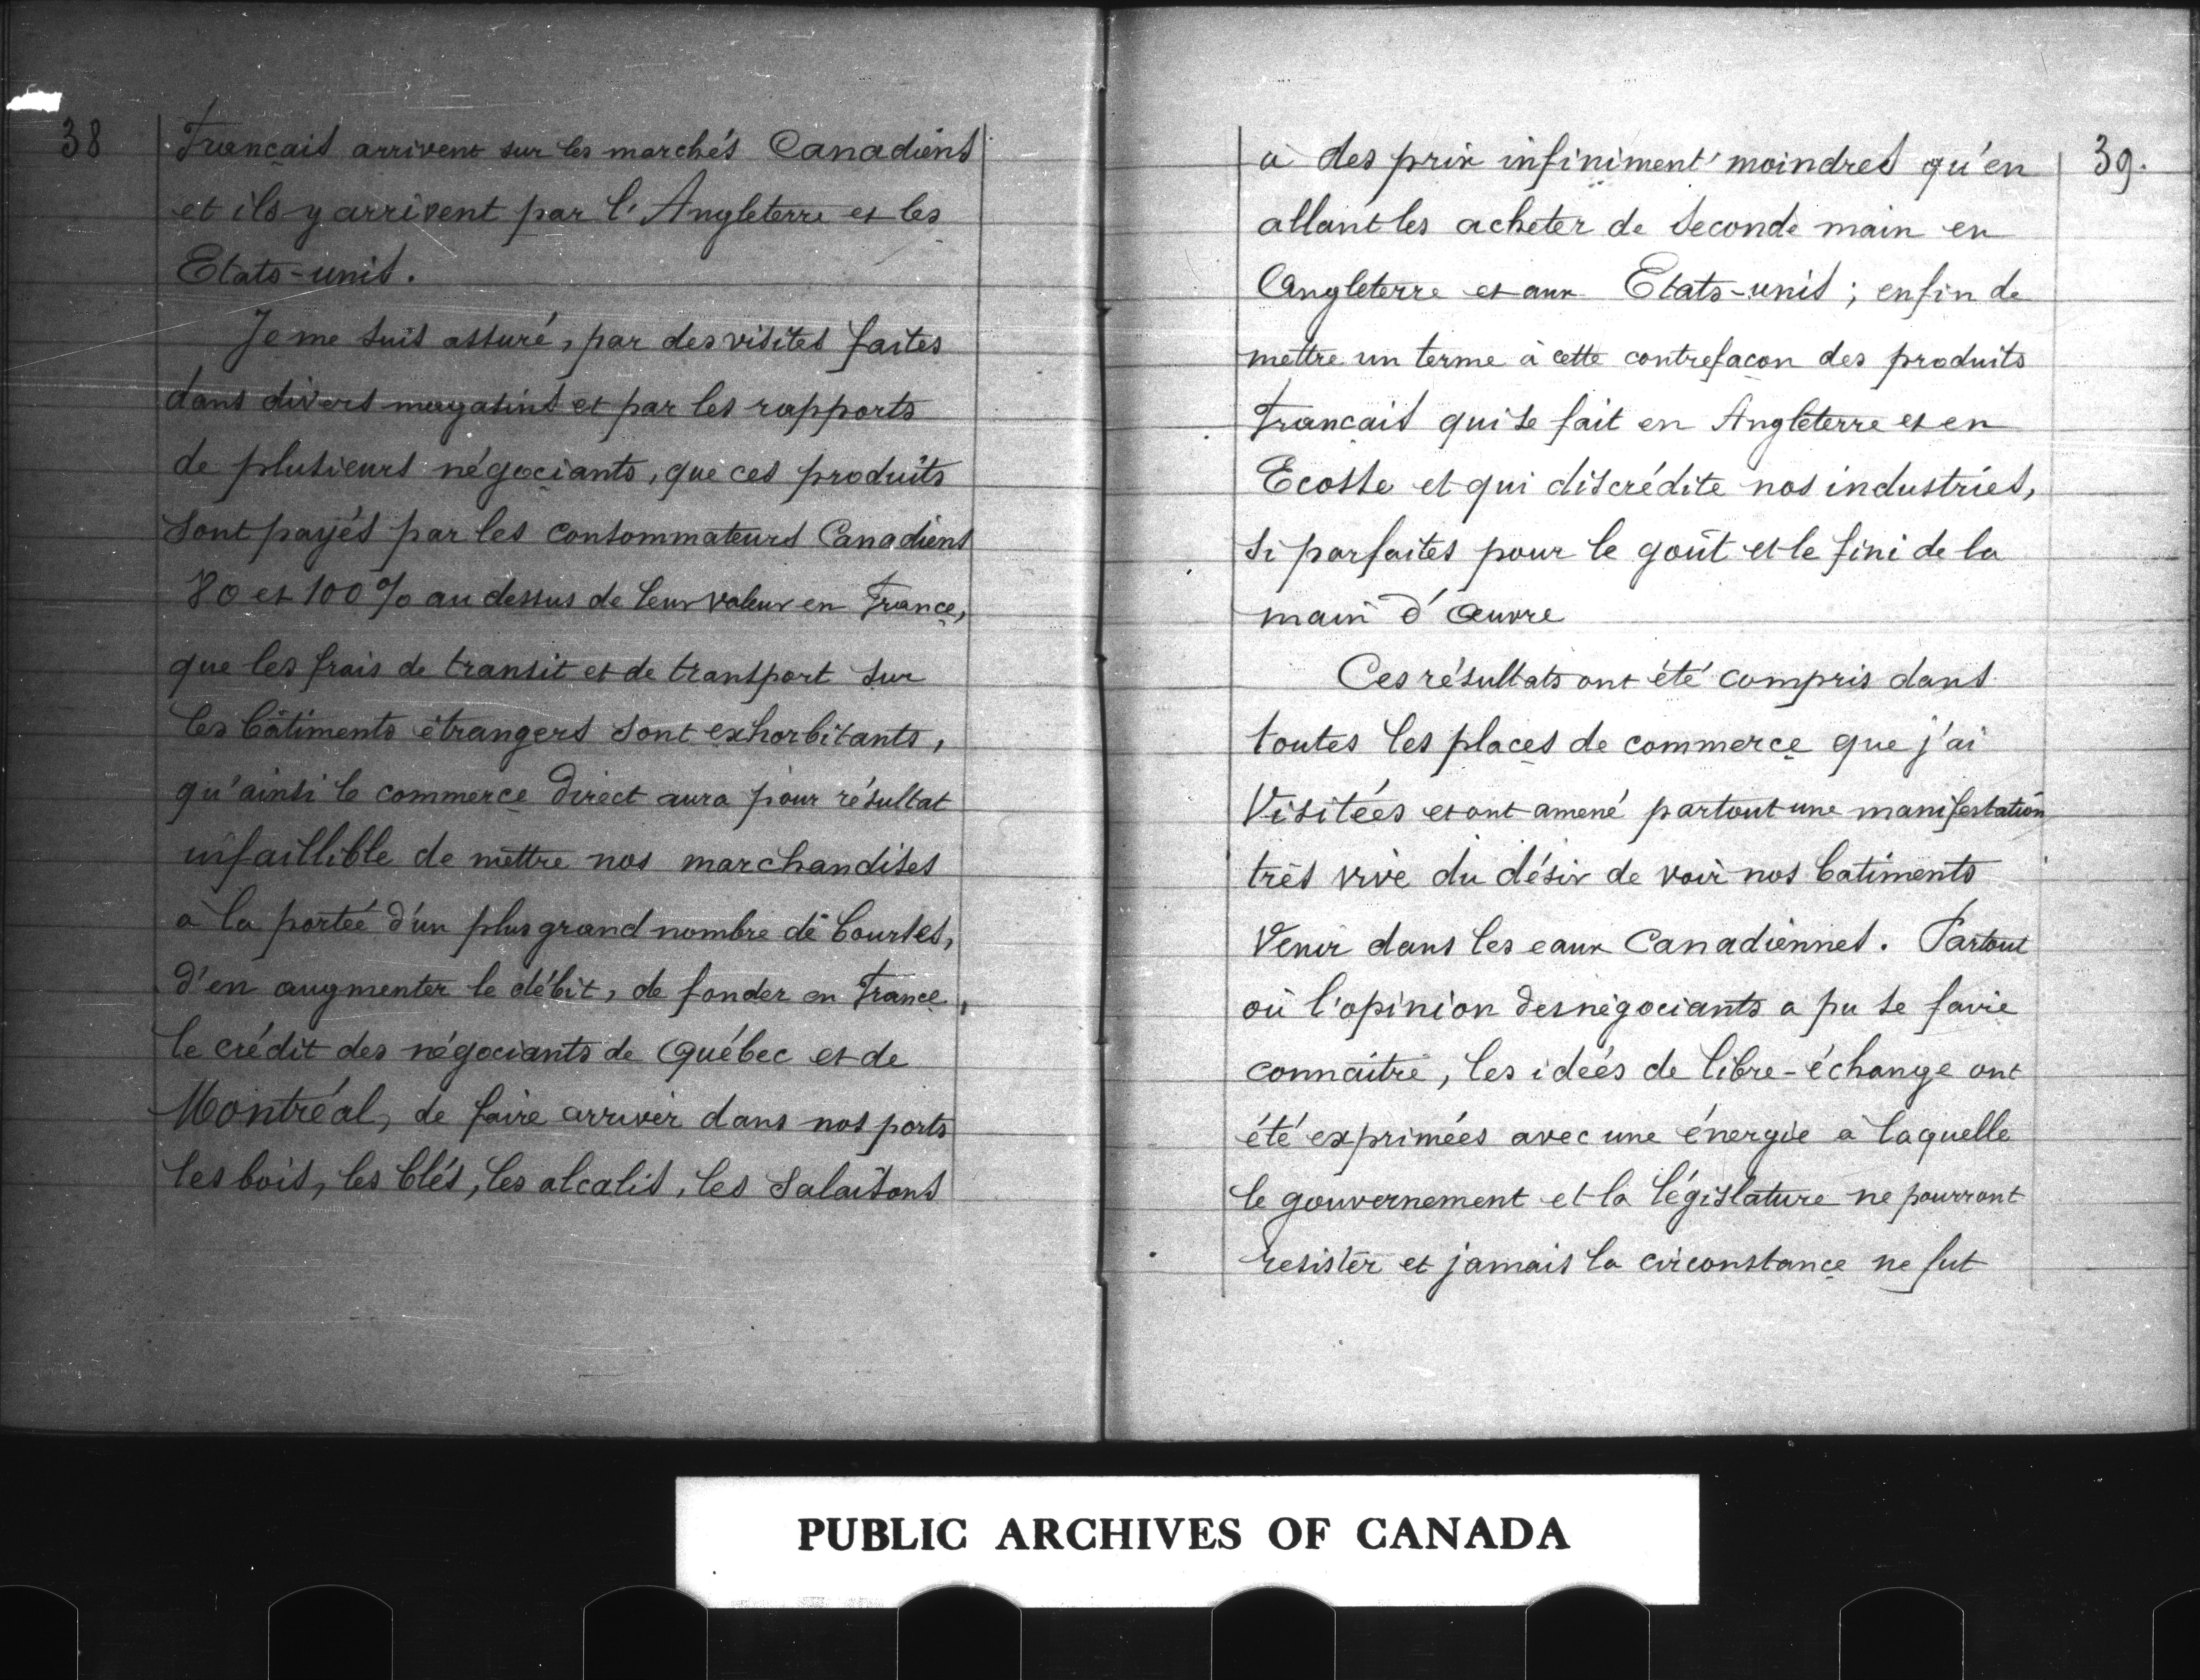 38
Français arrivent sur les marchés Canadiens
et ils y arrivent par l'Angleterre et les
Etats-unis.
Je me suis assuré, par des visites faites
dans divers magasins et par les rapports
de plusieurs négociants, que ces produits
sont payés par les consommateurs Canadiens
80 et 100 % au dessus de leur valeur en France,
que les frais de transit et de transport sur
les bâtiments étrangers sont exhorbitants,
qu'ainsi le commerce direct aura pour résultat
infaillible de mettre nos marchandises
à la portée d'un plus grand nombre de bourses,
d'en augmenter le débit, de fonder en France,
le crédit des négociants de Québec et de
Montréal, de faire arriver dans nos ports
les bois, les blés, les alcalis, les salaisons
39.
à des prix infiniment moindres qu'en
allant les acheter de seconde main en
Angleterre et aux Etats-unis ; enfin de
mettre un terme à cette contrefaçon des produits
Français qui se fait en Angleterre et en
Ecosse et qui discrédite nos industries,
si parfaites pour le goût et le fini de la
main d'œuvre
Ces résultats ont été compris dans
toutes les places de commerce que j'ai
Visitées et ont amené partout une manifestation
très vive du désir de voir nos batiments
Venir dans les eaux Canadiennes. Partout
où l'opinion des négociants a pu se faire
connaître, les idées de libre-échange ont
été exprimées avec une énergie à laquelle
le gouvernement et la législature ne pourront
resister et jamais la circonstance ne fut
PUBLIC ARCHIVES OF CANADA